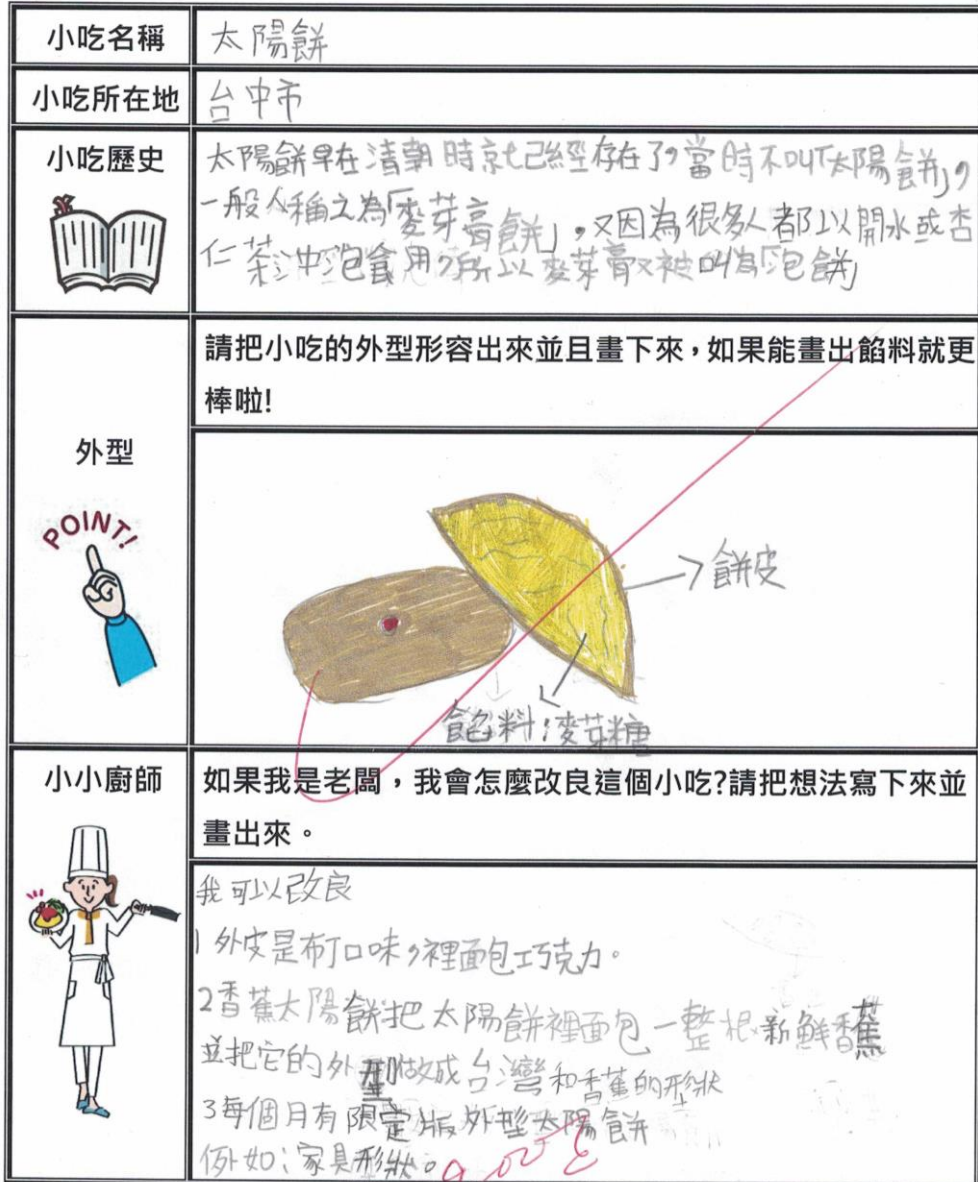 小吃名稱 太陽餅
小吃所在地 台中市
小吃歷史
太陽餅早在清朝時就已經存在了,當時不叫「太陽餅」,
一般人稱之為「麥芽膏餅」,又因為很多人都以開水或杏
仁茶沖泡食用,所以麥芽膏又被叫為「泡餅」
外型
POINT!
請把小吃的外型形容出來並且畫下來,如果能畫出餡料就更
棒啦!
餅皮
餡料:麥芽糖
小小廚師
如果我是老闆,我會怎麼改良這個小吃?請把想法寫下來並
畫出來。
我可以改良
1外皮是布丁口味,裡面包巧克力。
2香蕉太陽餅把太陽餅裡面包一整根新鮮香蕉
並把它的外型做成台灣和香蕉的形狀
3每個月有限定版外型太陽餅
例如:家具形狀。